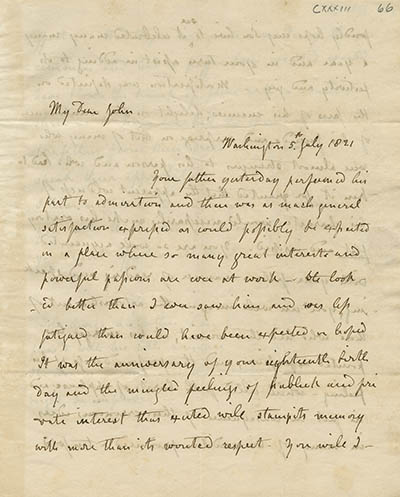 CXXXIII 66
My Dear John
Washington 5th July 1821
Your father yesterday performed his
part to admiration and there was as much general
satisfaction expressed as could possibly be expected
in a place where so many great interests and
powerful passions are ever at work — He look
-ed better than I ever saw him and was less
fatigued than could have been expected or hoped
It was the anniversary of your eighteenth birth
day and the mingled feelings of publick and pri
vate interest thus excited will stamp its memory
with more than its wonted respect. You will I—